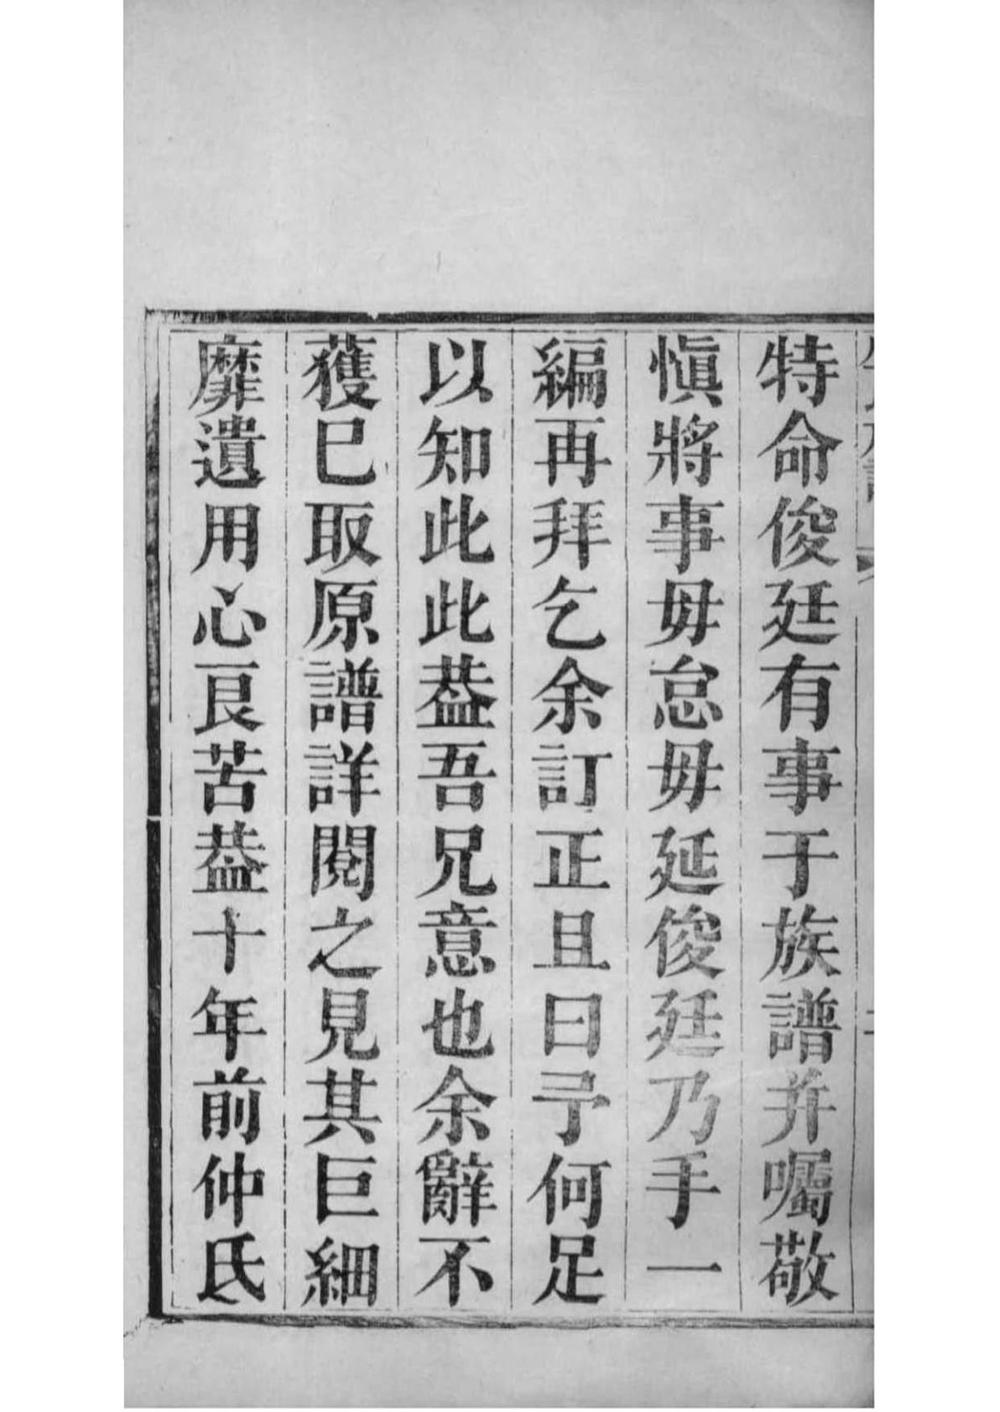 特命俊廷有事于族譜并囑敬
愼將事毋怠毋延俊廷乃手一
編再拜乞余訂正且曰予何足
以知此此葢吾兄意也余辭不
獲巳取原譜詳閱之見其巨細
靡遺用心艮苦葢十年前仲氏